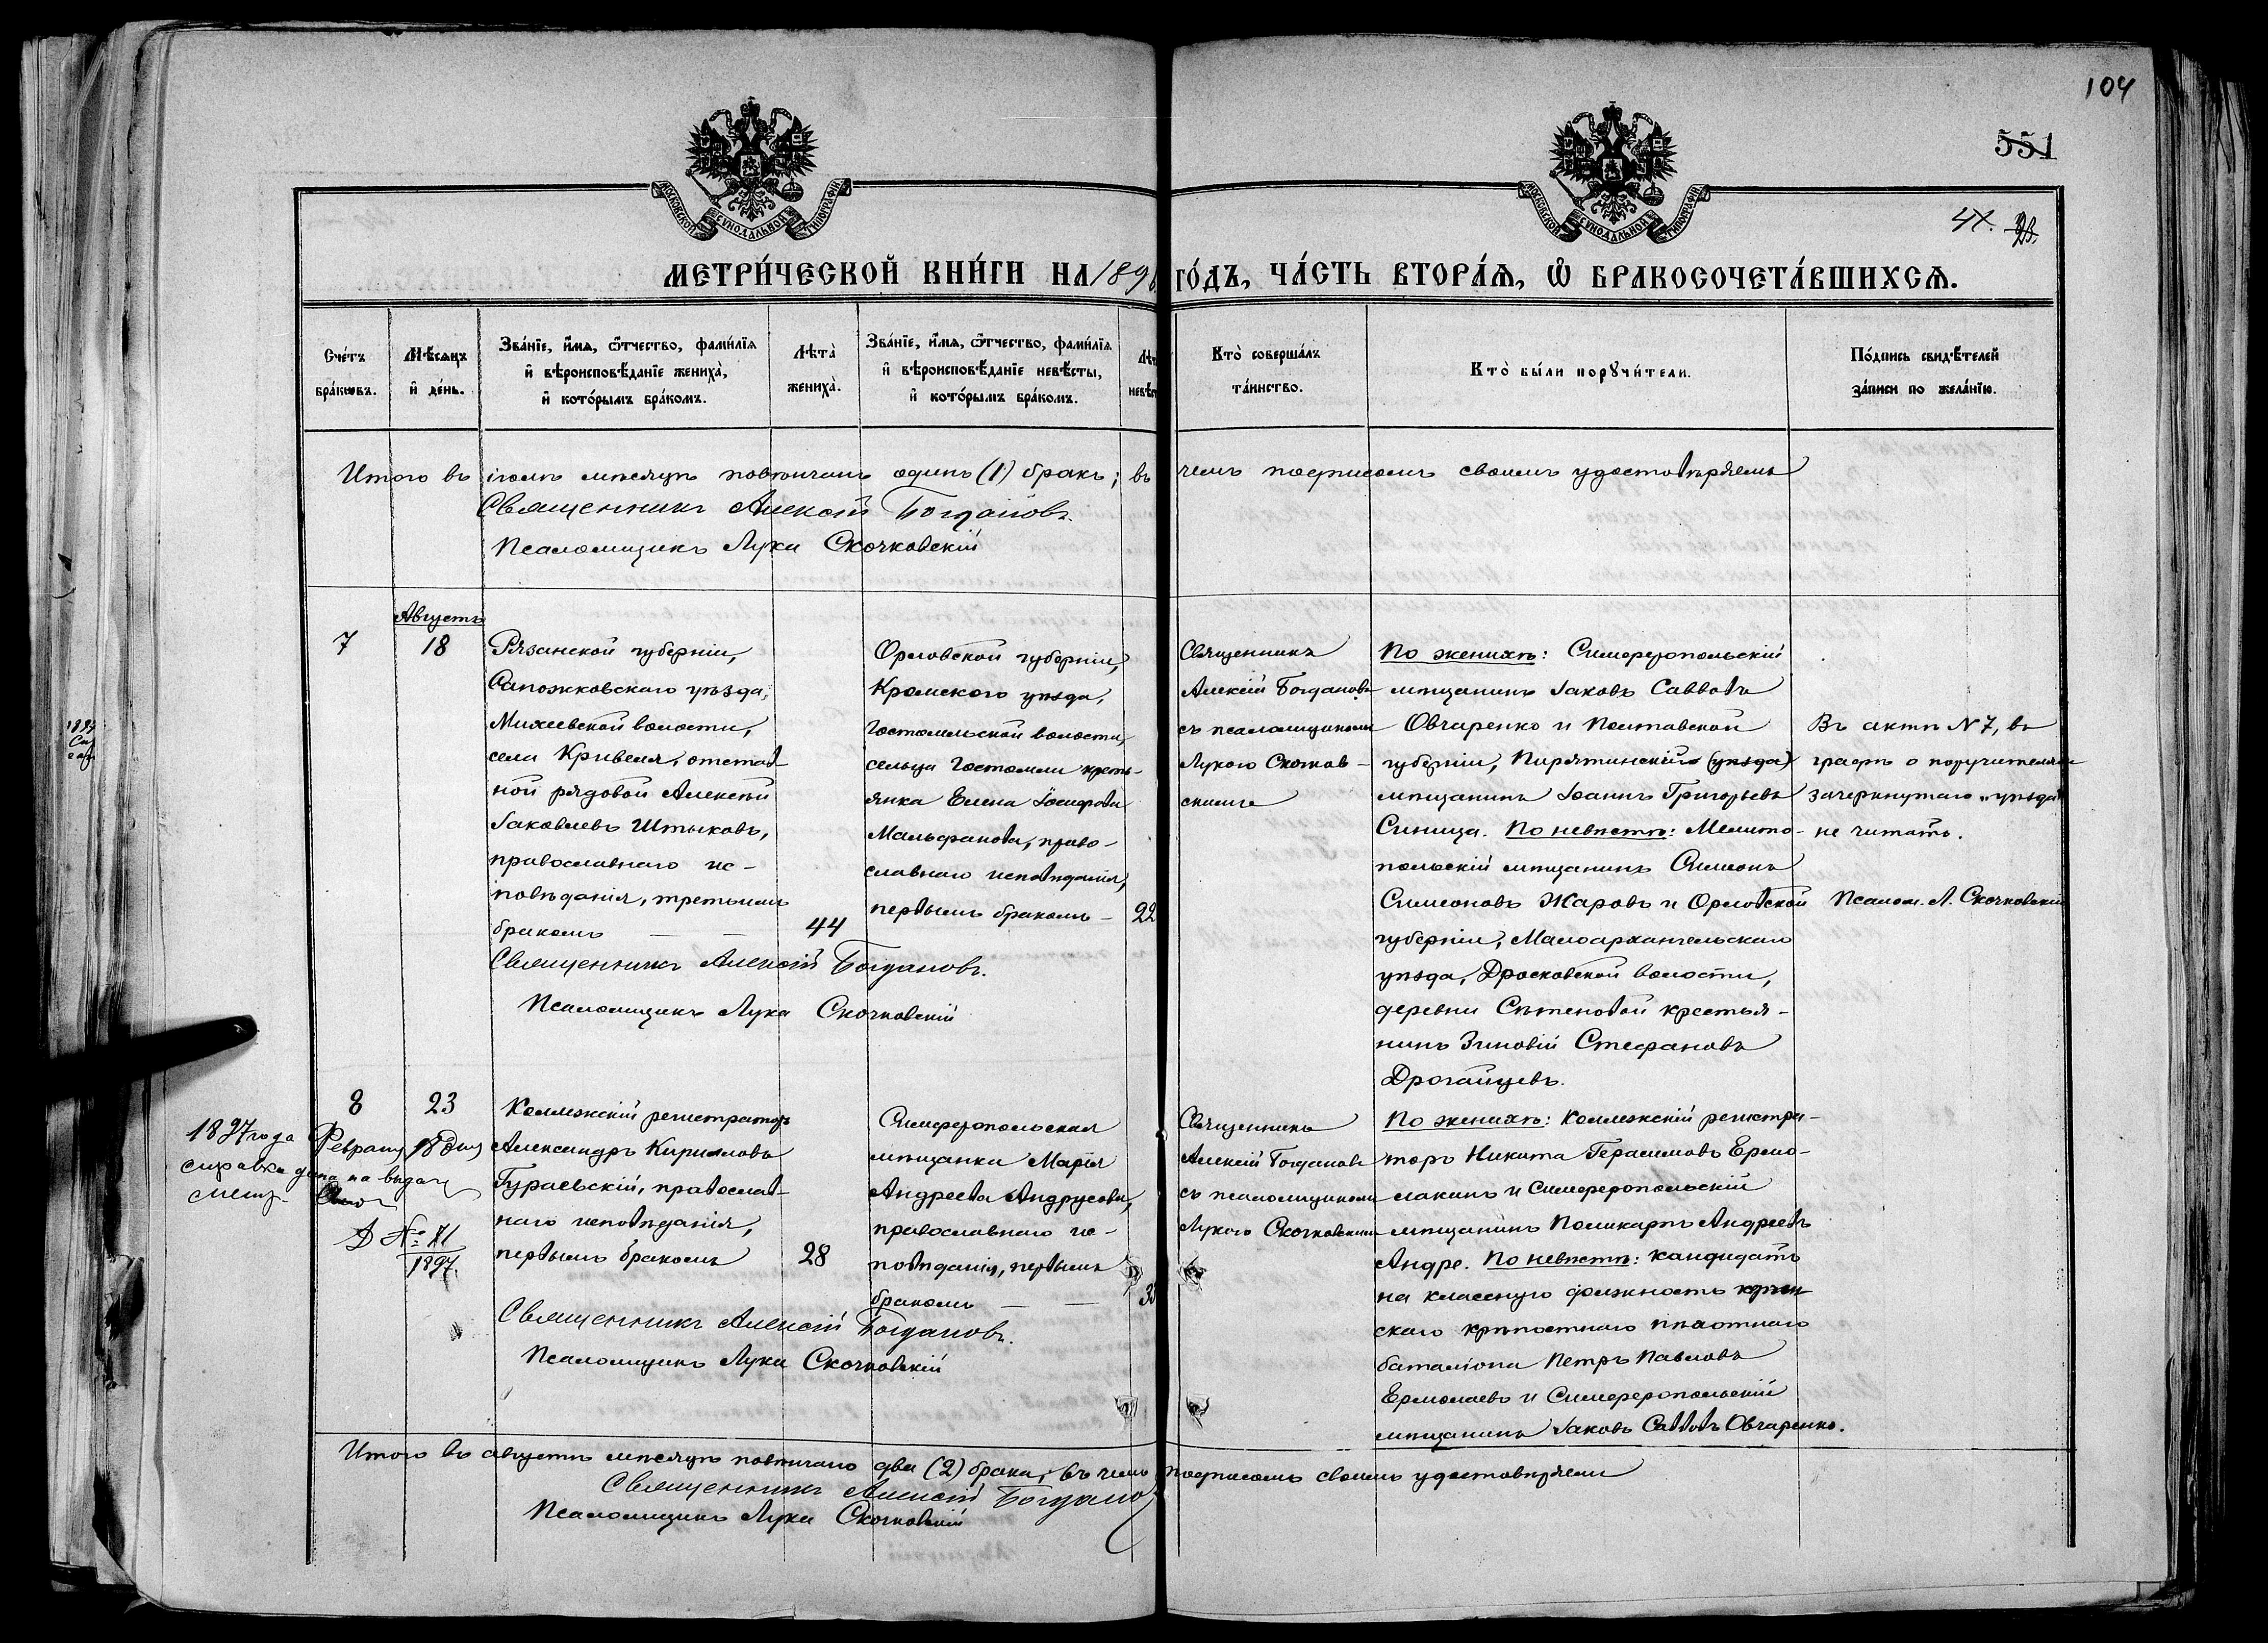 104
551
4х.
МОСКОВСКОЙ СѴНОДАЛЬНОЙ ТИПОГРАФІИ
МОСКОВСКОЙ СѴНОДАЛЬНОЙ ТИПОГРАФІИ
МЕТРИ́ЧЕСКОЙ КНИ́ГИ НА 1896 ГО́ДЪ, ЧА́СТЬ ВТОРА́Я, Ѡ БРАКОСОЧЕТА́ВШИХСЯ.
Сче́тъ
бра́ковъ.
Мѣ́сяцъ
и҆ де́нь.
Зва́нїе, и҆́мя, ѻ҆́тчество, фами́лїя
и҆ вѣроисповѣ́данїе жениха̀,
и҆ кото́рымъ бра́комъ.
Лѣ́та
жениха̀.
Зва́нїе, и҆́мя, ѻ҆́тчество, фами́лїя
и҆ вѣроисповѣ́данїе невѣ́сты,
и҆ кото́рымъ бра́комъ.
Лѣт
невѣс
Кто̀ соверша́лъ
та́инство.
Кто̀ бы́ли порꙋчи́тели.
По́дпись свидѣ́телей
за́писи по жела́нїю.
Итого въ іюлѣ мѣсяцѣ повѣнчанъ одинъ (1) бракъ; въ чемъ подписомъ своимъ удостовѣряемъ
Священникъ Алексій Богдановъ.
Псаломщикъ Лука Скочковскій
Августъ
7
18
Рязанской губерніи,
Сапожковскаго уѣзда,
Михеевской волости,
села Кривеля, отстав-
ной рядовой Алексѣй
Іаковлевъ Штыковъ,
православнаго ис-
повѣданія, третьимъ
бракомъ — —
44
Орловской губерніи,
Кромского уѣзда,
Гостомльской волости,
сельца Гостомли кресть-
янка Елена Іосифова
Мальфанова, право-
славнаго исповѣданія,
первымъ бракомъ —
22
Священникъ
Алексій Богдановъ
съ псаломщикомъ
Лукою Скочков-
скимъ
По женихѣ: Симферопольскій
мѣщанинъ Іаковъ Савовъ
Овчаренко и Полтавской
губерніи, Пирятинскій (уѣзда)
мѣщанинъ Іоаннъ Григорьевъ
Синица. По невѣстѣ: Мелито-
польскій мѣщанинъ Симеонъ
Симеоновъ Жаровъ и Орловской
губерніи, Малоархангельскаго
уѣзда, Дросковской волости,
деревни Сѣтеновой крестья-
нинъ Зиновій Стефановъ
Дрогайцевъ.
Въ актѣ N 7, въ
графѣ о поручителяхъ
зачеркнутаго „уѣзда"
не читать.
Псалом. Л. Скочковскій
Священникъ Алексій Богдановъ.
Псаломщикъ Лука Скочковскій
8
23
Коллежскій регистраторъ
Александръ Кирилловъ
Гураевскій, православ-
наго исповѣданія,
первымъ бракомъ
28
Симферопольская
мѣщанка Марія
Андреева Андрусова,
православнаго ис-
повѣданія, первымъ
бракомъ — —
Священникъ
Алексій Богдановъ
съ псаломщикомъ
Лукою Скочковскимъ
По женихѣ: Коллежскій регистра-
торъ Никита Герасимовъ Ермо-
лакинъ и Симферопольскій
мѣщанинъ Поликарпъ Андреевъ
Андре. По невѣстѣ: кандидатъ
на классную должность
скаго крѣпостнаго пѣхотнаго
баталіона Петръ Павловъ
Ермолаевъ и Симферопольскій
мѣщанинъ Іаковъ Савовъ Овчаренко.
1897 года Февраля 18 дня
справка дана на выдачу
№ 71
1897.
Священникъ Алексій Богдановъ.
Псаломщикъ Лука Скочковскій
Итого въ августѣ мѣсяцѣ повѣнчано два (2) брака; въ чемъ подписомъ своимъ удостовѣряемъ
Священникъ Алексій Богдановъ
Псаломщикъ Лука Скочковскій